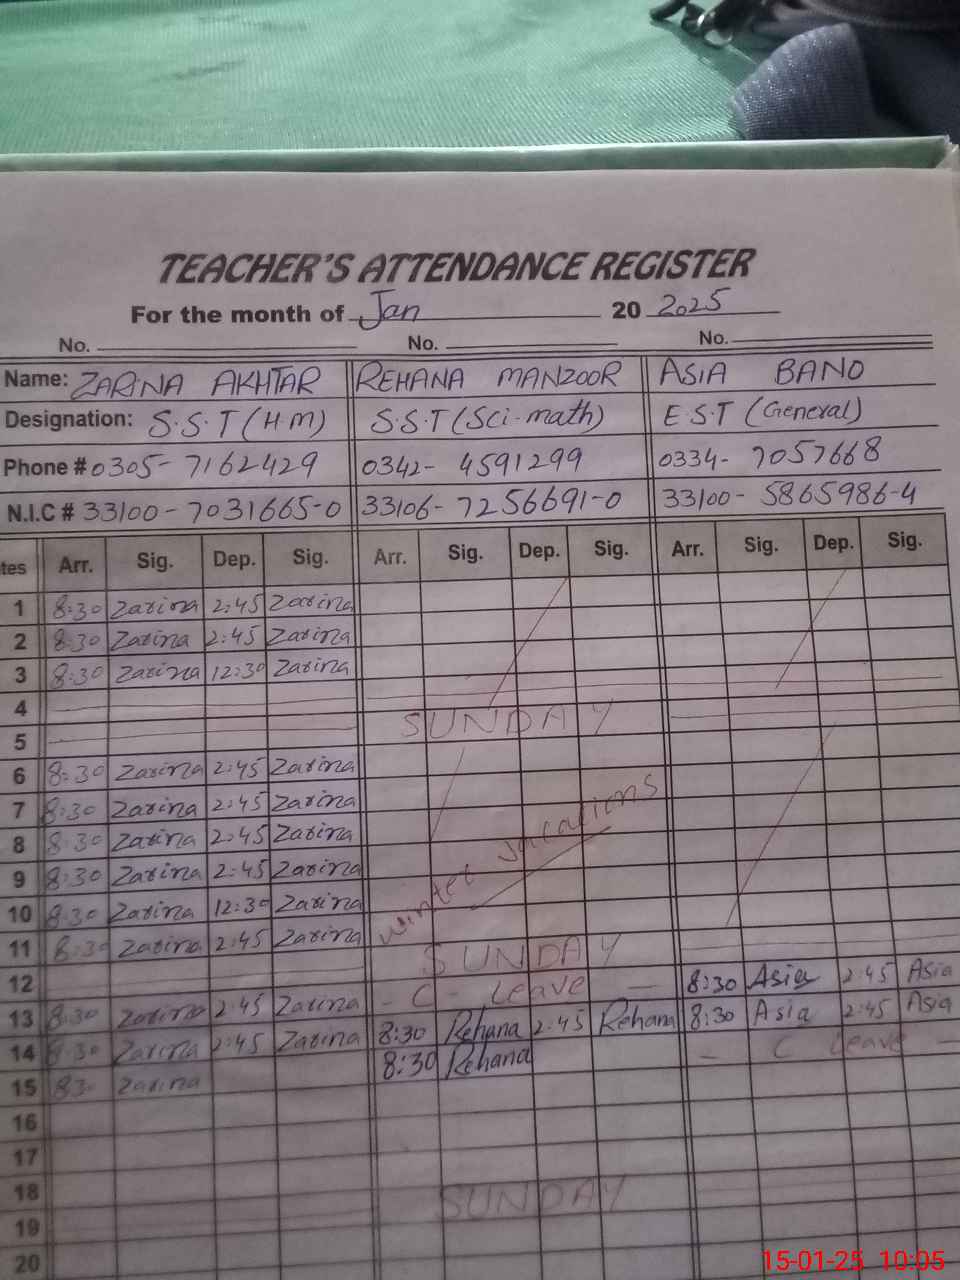 TEACHER'S ATTENDANCE REGISTER
For the month of Jan 20 2025
No. No. No.
Name: ZARINA AKHTAR REHANA MANZOOR ASIA BANO
Designation: S.S.T (H.M) S.S.T (Sci-math) E.S.T (General)
Phone # 0305-7162429 0342-4591299 0334-7057668
N.I.C # 33100-7031665-0 33106-7256691-0 33100-5865986-4
tes Arr. Sig. Dep. Sig. Arr. Sig. Dep. Sig. Arr. Sig. Dep. Sig.
1 8:30 Zarina 2:45 Zarina
2 8:30 Zarina 2:45 Zarina
3 8:30 Zarina 12:30 Zarina
4
SUNDAY
5
6 8:30 Zarina 2:45 Zarina
7 8:30 Zarina 2:45 Zarina
8 8:30 Zarina 2:45 Zarina
winter vacations
9 8:30 Zarina 2:45 Zarina
10 8:30 Zarina 12:30 Zarina
11 8:30 Zarina 2:45 Zarina
SUNDAY
12
13 8:30 Zarina 2:45 Zarina - C - Leave - 8:30 Asia 2:45 Asia
14 8:30 Zarina 2:45 Zarina 8:30 Rehana 2:45 Rehana 8:30 Asia 2:45 Asia
15 830 Zarina 8:30 Rehana - C Leave -
16
17
18
SUNDAY
19
20
15-01-25 10:05